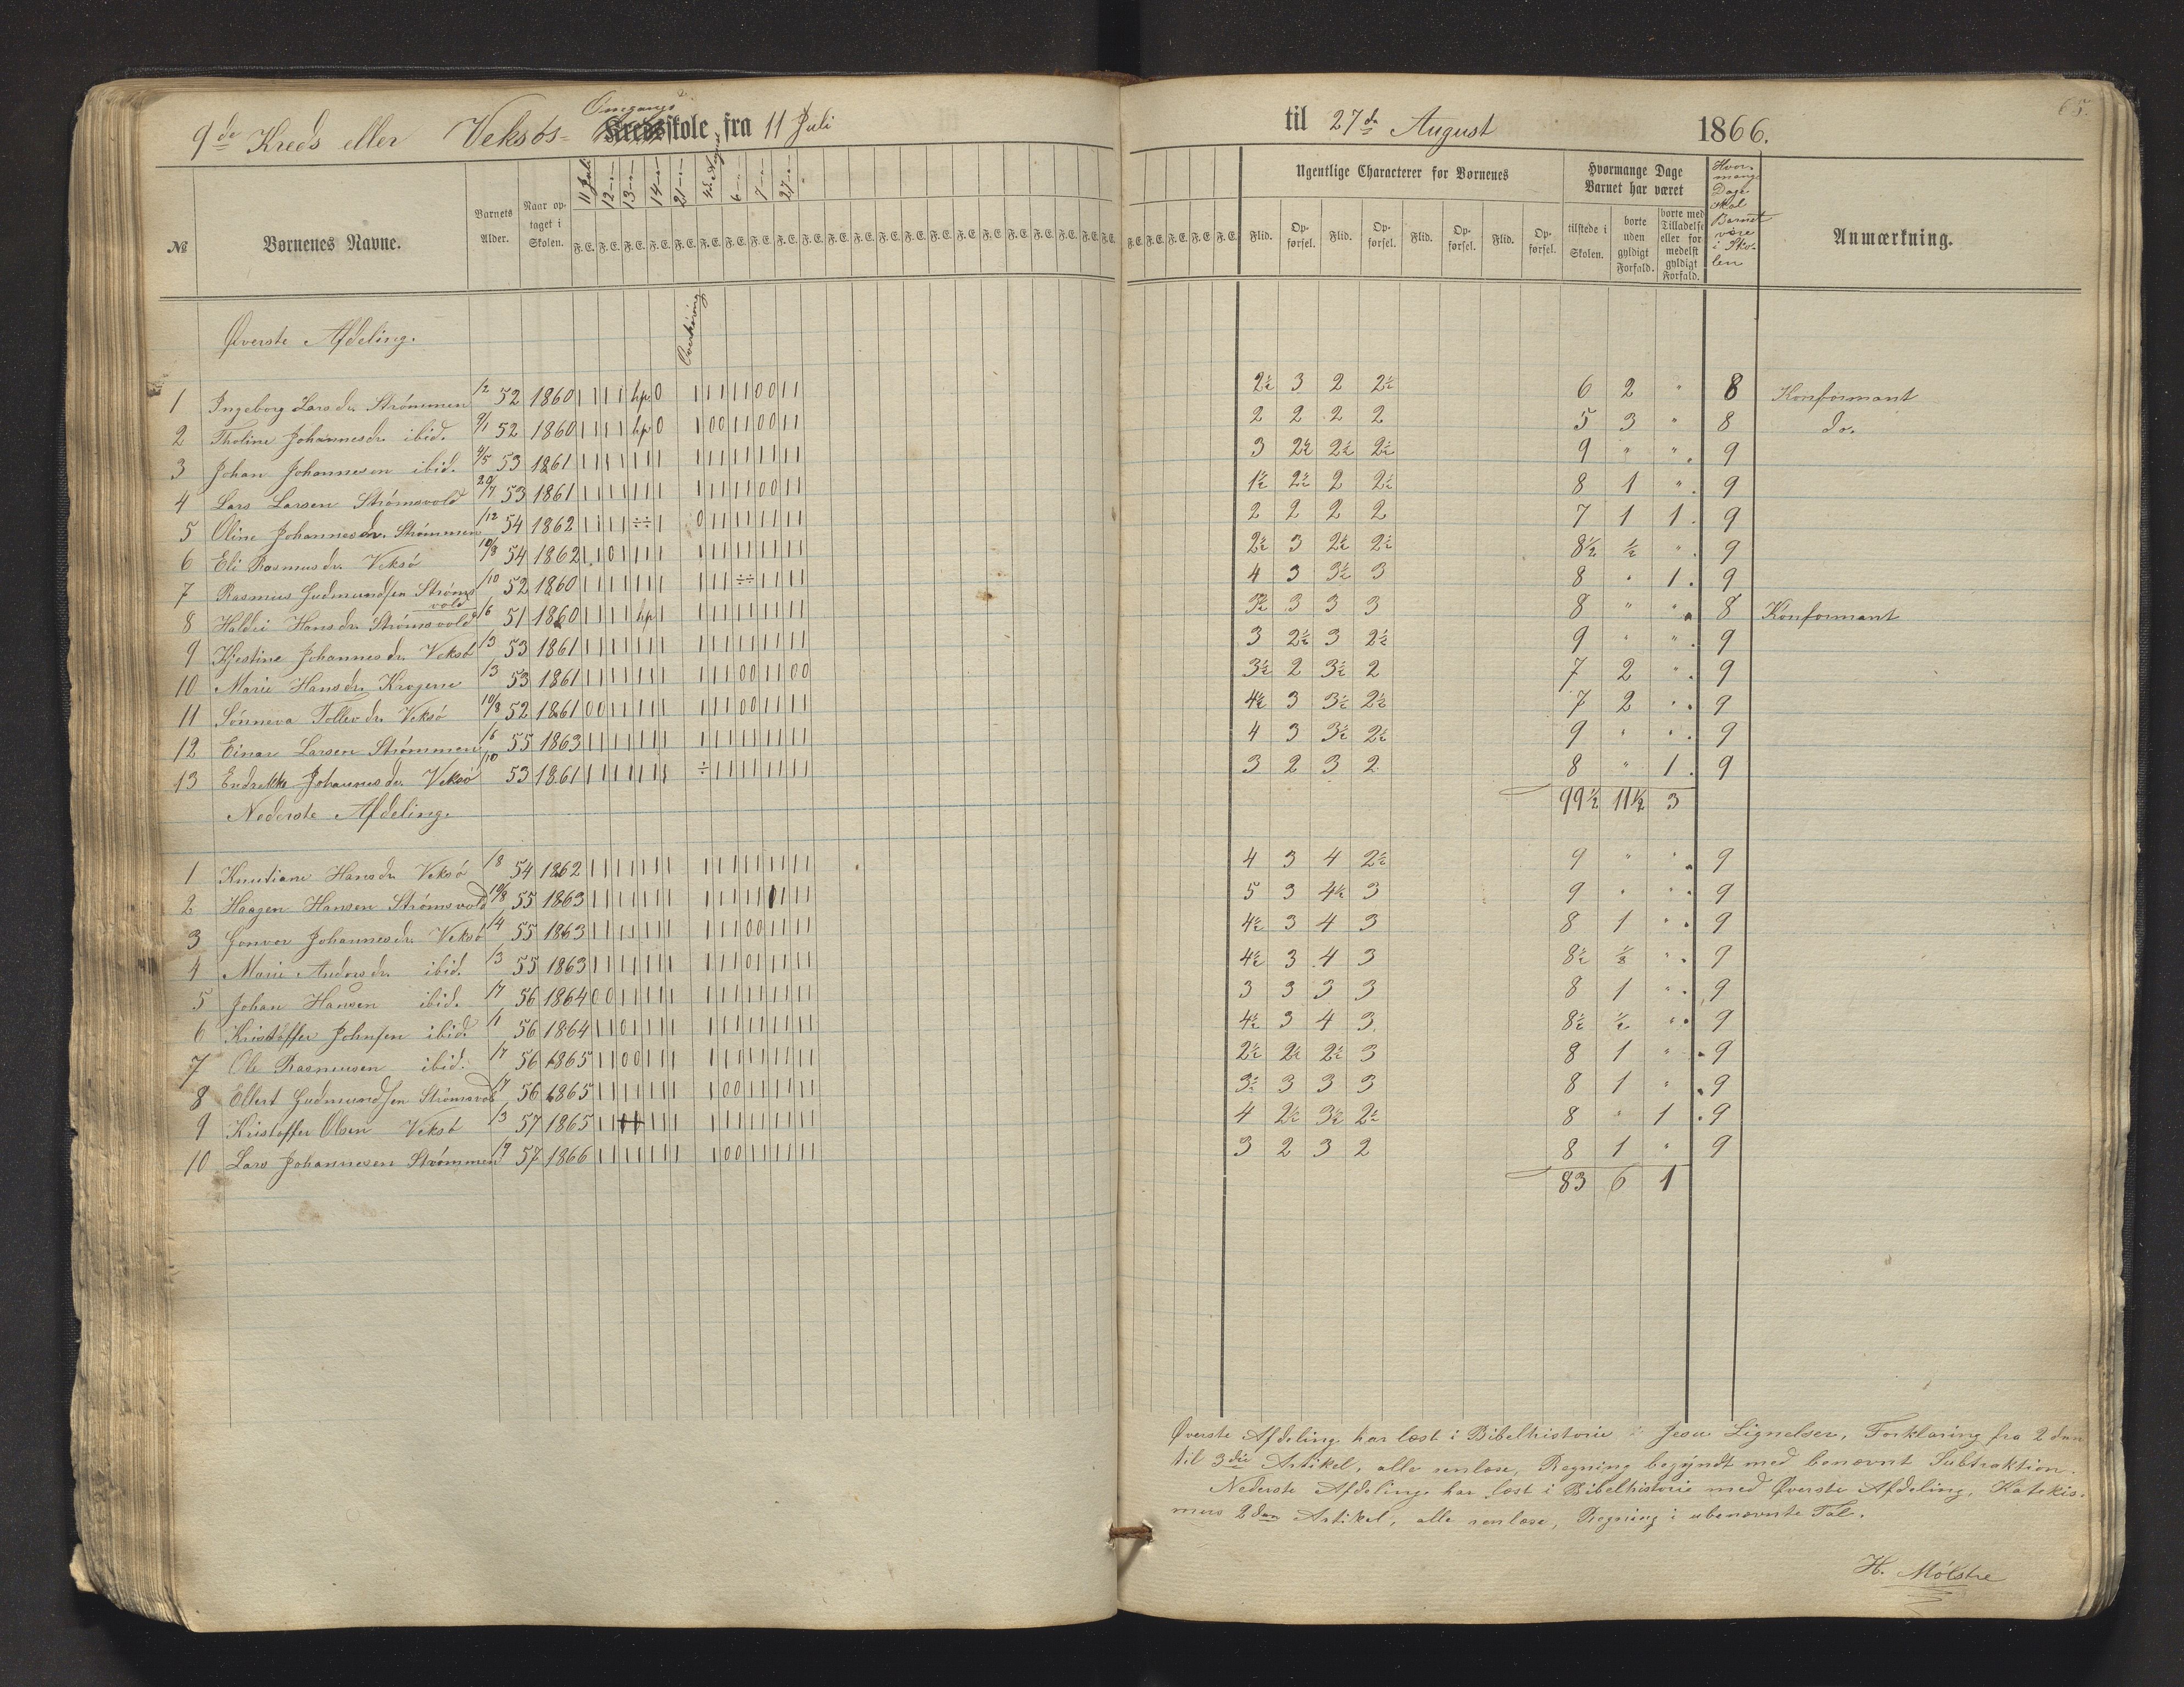 65.
9de Kreds eller Veksøs- Omgangsskole fra 11 Juli til 27de August 1866.
№ Børnenes Navne. Barnets Alder. Naar optaget i Skolen. 11 Juli 12 — 13 — 14 — 21 — 4de August 6 — 7 — 27 —
F. E. F. E. F. E. F. E. F. E. F. E. F. E. F. E. F. E.
Ugentlige Characterer for Børnenes
Flid. Opførsel. Flid. Opførsel. Flid. Opførsel. Flid. Opførsel.
Hvormange Dage Barnet har været
tilstede i Skolen. borte uden gyldigt Forfald. borte med Tilladelse eller formedelst gyldigt Forfald.
Hvormange Dage skal Barnet være i Skolen
Anmærkning.
Øverste Afdeling.
1 Ingeborg Larsdr. Strømmen /2 52 1860 1 1 1 1 hp 0 1 1 1 1 1 0 0 1 1 2½ 3 2 2½ 6 2 " 8 Konformant
2 Tholine Johannesdr. ibid. 9/1 52 1860 1 1 1 1 hp 0 1 0 0 1 1 0 0 1 1 2 2 2 2 5 3 " 8 do.
3 Johan Johannesen ibid. 4/5 53 1861 3 2½ 2½ 2½ 9 " " 9
4 Lars Larsen Strømsvold 20/7 53 1861 1½ 2½ 2 2½ 8 1 " 9
5 Oline Johannesdr. Strømmen /12 54 1862 2 2 2 2 7 1 1 9
6 Eli Rasmusdr. Veksø 10/8 54 1862 2½ 3 2½ 2½ 8½ ½ " 9
7 Rasmus Gudmundsen Strømsvold /10 52 1860 4 3 3½ 3 8 " 1 9
8 Haldri Hansdr. Strømsvold /6 51 1860 3½ 3 3 3 8 " " 8 Konformant
9 Kjestine Johannesdr. Veksø /3 53 1861 3 2½ 3 2½ 9 " " 9
10 Marie Hansdr. Krogene /3 53 1861 3½ 2 3½ 2 7 2 " 9
11 Sønneva Tollevdr. Veksø 10/8 52 1861 4½ 3 3½ 2½ 7 2 " 9
12 Einar Larsen Strømmen /6 55 1863 4 3 3½ 2½ 9 " " 9
13 Endrikke Johannesdr. Veksø /10 53 1861 3 2 3 2 8 " 1 9
99½ 11½ 3
Nederste Afdeling.
1 Knutiane Hansdr. Veksø /8 54 1862 4 3 4 2½ 9 " " 9
2 Haagen Hansen Strømsvold 10/8 55 1863 5 3 4½ 3 9 " " 9
3 Gonvor Johannesdr. Veksø /4 55 1863 4½ 3 4 3 8 1 " 9
4 Marie Andersdr. ibid. /3 55 1863 4½ 3 4 3 8½ ½ " 9
5 Johan Hansen ibid. /7 56 1864 3 3 3 3 8 1 " 9
6 Kristoffer Johnsen ibid. /1 56 1864 4½ 3 4 3 8½ ½ " 9
7 Ole Rasmusen ibid. /7 56 1865 2½ 2½ 2½ 3 8 1 " 9
8 Ellert Gudmundsen Strømsvold /7 56 1865 3½ 3 3 3 8 1 " 9
9 Kristoffer Olsen Veksø /3 57 1865 4 2½ 3½ 2½ 8 " 1 9
10 Lars Johannesen Strømmen /9 57 1866 3 2 3 2 8 1 " 9
83 6 1
Øverste Afdeling har læst i Bibelhistorie Jesu Lignelser, Forklaring fra 2den
til 3die Artikel, alle renlæse, Regning begyndt med benævnt Subtraktion.
Nederste Afdeling har læst i Bibelhistorie med Øverste Afdeling, Katekis-
mus 2den Artikel, alle renlæse, Regning i ubenævnte Tal.
H. Mölstre